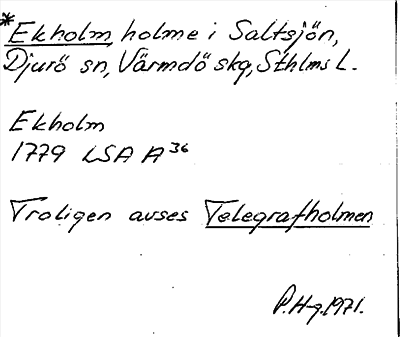 *Ekholm, holme i Saltsjön,
Djurö sn, Värmdö skg, Sthlms L.
Ekholm
1779 LSA A 36
Troligen avses Telegrafholmen
P.H-g. 1971.